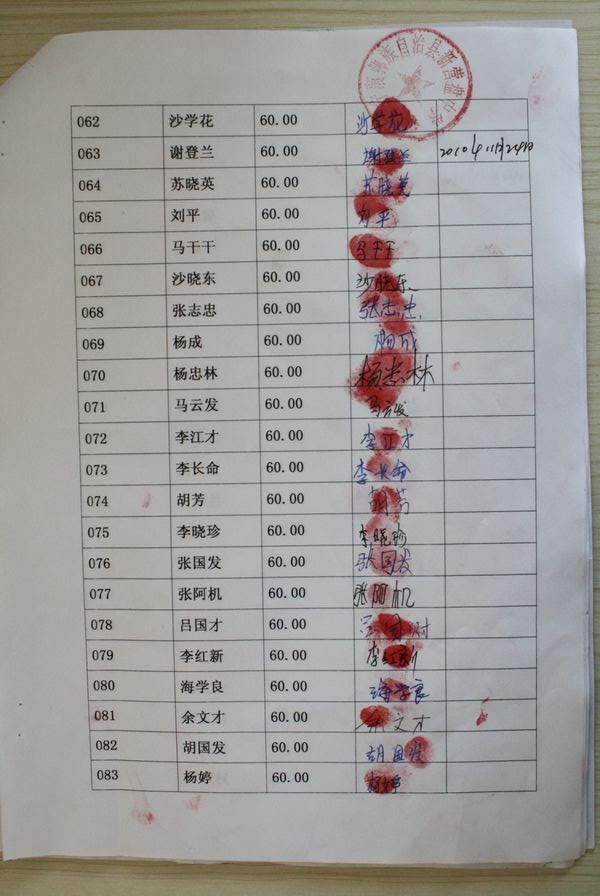 彝族自治县新营盘中
062 沙学花 60.00 沙学花
063 谢登兰 60.00 谢登兰
064 苏晓英 60.00 苏晓英
065 刘平 60.00 刘平
066 马干干 60.00 马干干
067 沙晓东 60.00 沙晓东
068 张志忠 60.00 张志忠
069 杨成 60.00 杨成
070 杨忠林 60.00 杨忠林
071 马云发 60.00 马云发
072 李江才 60.00 李江才
073 李长命 60.00 李长命
074 胡芳 60.00 胡芳
075 李晓珍 60.00 李晓珍
076 张国发 60.00 张国发
077 张阿机 60.00 张阿机
078 吕国才 60.00 吕国财
079 李红新 60.00 李红新
080 海学良 60.00 海学良
081 余文才 60.00 余文才
082 胡国发 60.00 胡国发
083 杨婷 60.00 杨婷